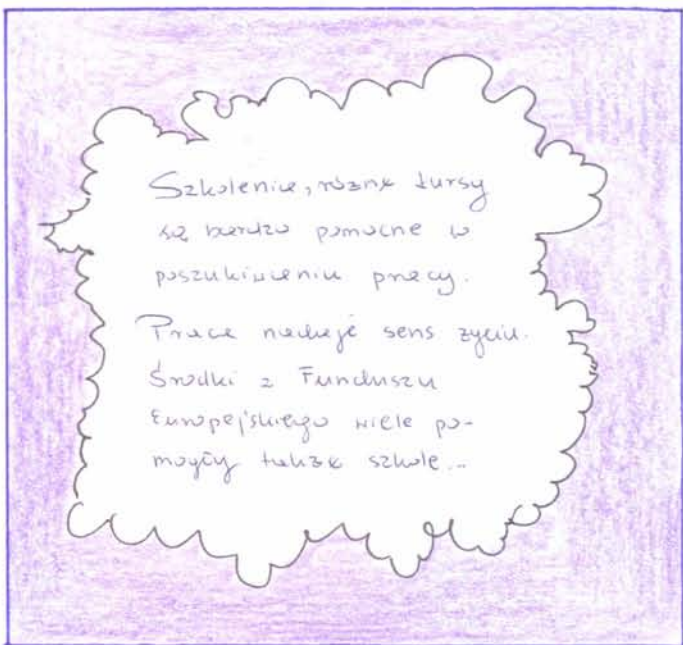 Szkolenie, różne kursy
są bardzo pomocne w
poszukiwaniu pracy.
Praca nadaje sens życiu.
Środki z Funduszu
Europejskiego wiele po-
mogły także szkole...